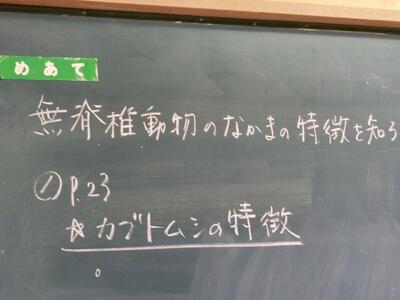 めあて
無脊椎動物のなかまの特徴を知ろ
① P.23
☆カブトムシの特徴
。